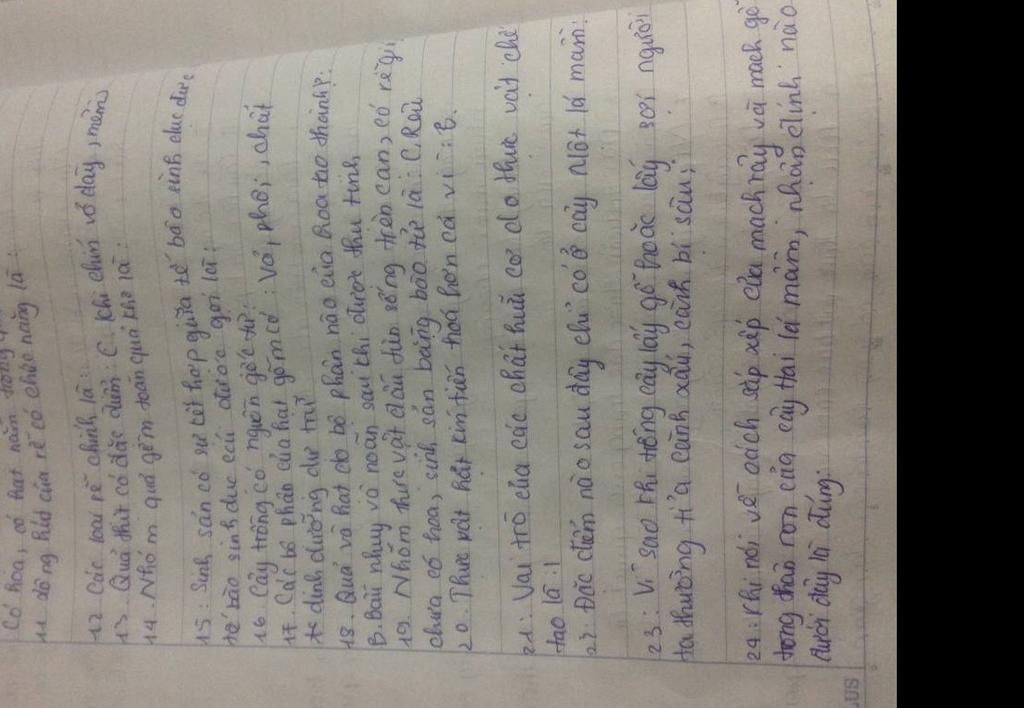 Có hoa, có hạt nằm trong
11. lông hút của rễ có chức năng là:
12 Các loại rễ chính là:
13. Quả thịt có đặc điểm: C. khi chín vỏ dày, mềm
14. Nhóm quả gồm toàn quả khô là:
15: Sinh sản có sự kết hợp giữa tế bào sinh dục đực
tế bào sinh dục cái được gọi là:
16 Cây trồng có nguồn gốc từ:
17. Các bộ phận của hạt gồm có: Vỏ, phôi, chất
dinh dưỡng dự trữ
18. Quả và hạt do bộ phận nào của hoa tạo thành?:
B. Bầu nhuỵ và noãn sau khi được thụ tinh
19. Nhóm thực vật đầu tiên sống trên cạn, có rễ giả
chưa có hoa, sinh sản bằng bào tử là: C. Rêu
20. Thực vật hạt kín tiến hoá hơn cả vì: B.
21: Vai trò của các chất hữu cơ do thực vật chế
tạo là:
22. Đặc điểm nào sau đây chỉ có ở cây Một lá mầm:
23: Vì sao khi trồng cây lấy gỗ hoặc lấy sợi người
ta thường tỉa cành xấu, cành bị sâu;
24: Khi nói về cách sắp xếp của mạch rây và mạch gỗ
trong thân non của cây Hai lá mầm, nhận định nào
dưới đây là đúng:
LUS